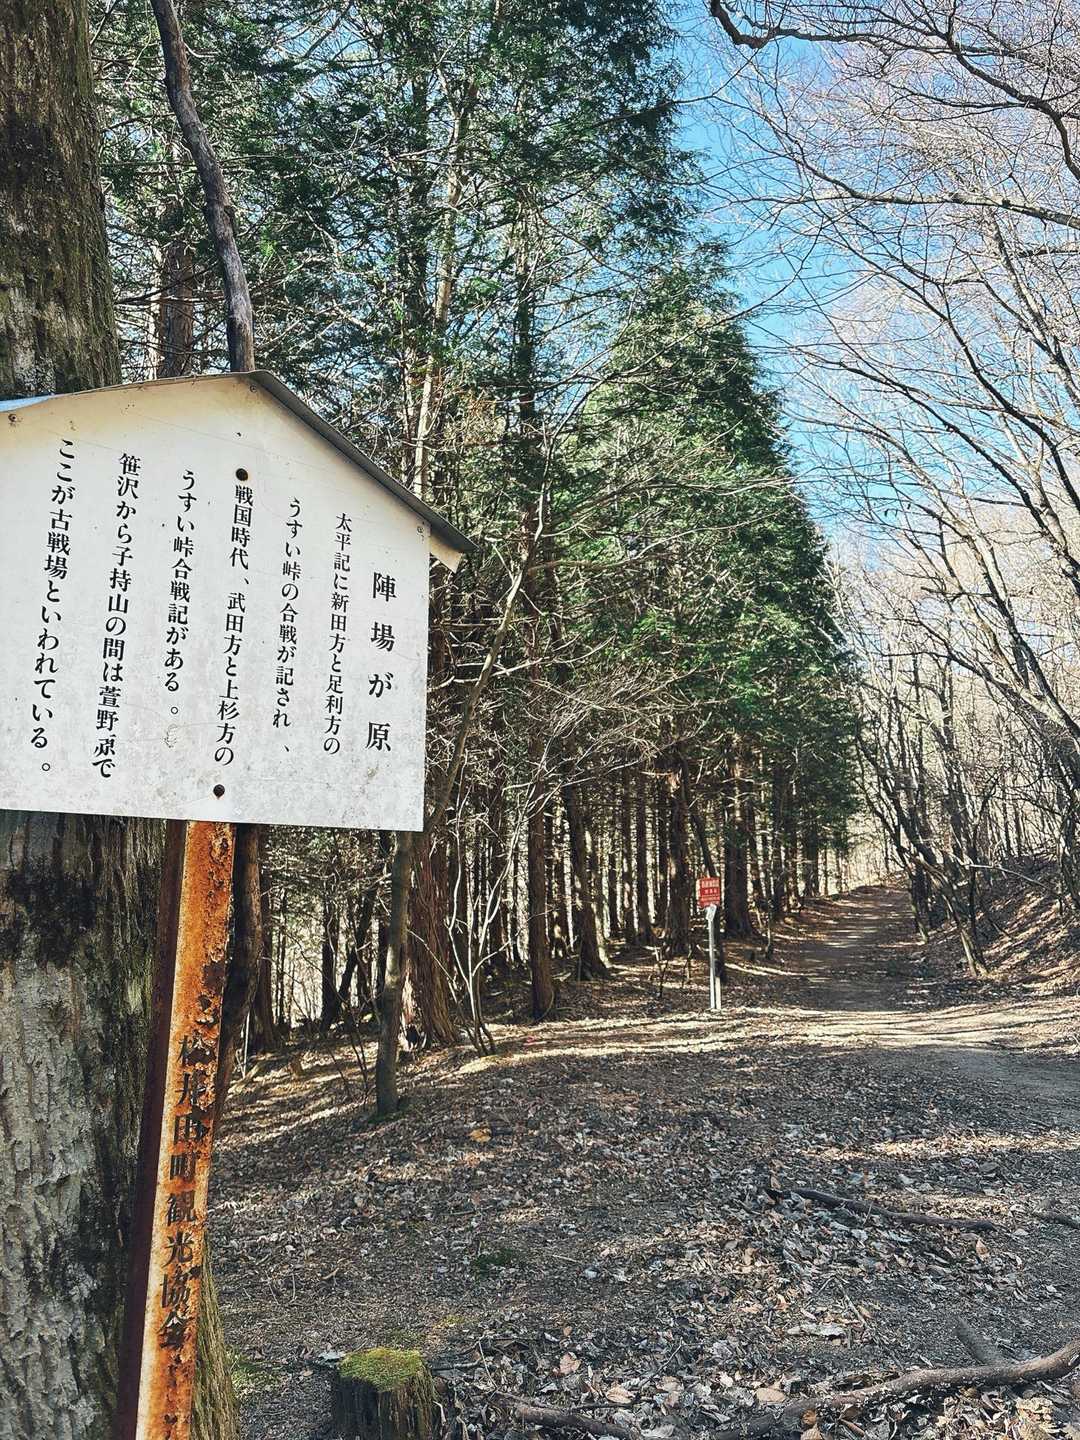 陣場が原
太平記に新田方と足利方の
うすい峠の合戦が記され、
戦国時代、武田方と上杉方の
うすい峠合戦記がある。
笹沢から子持山の間は萱野原で
ここが古戦場といわれている。
松井田町観光協会